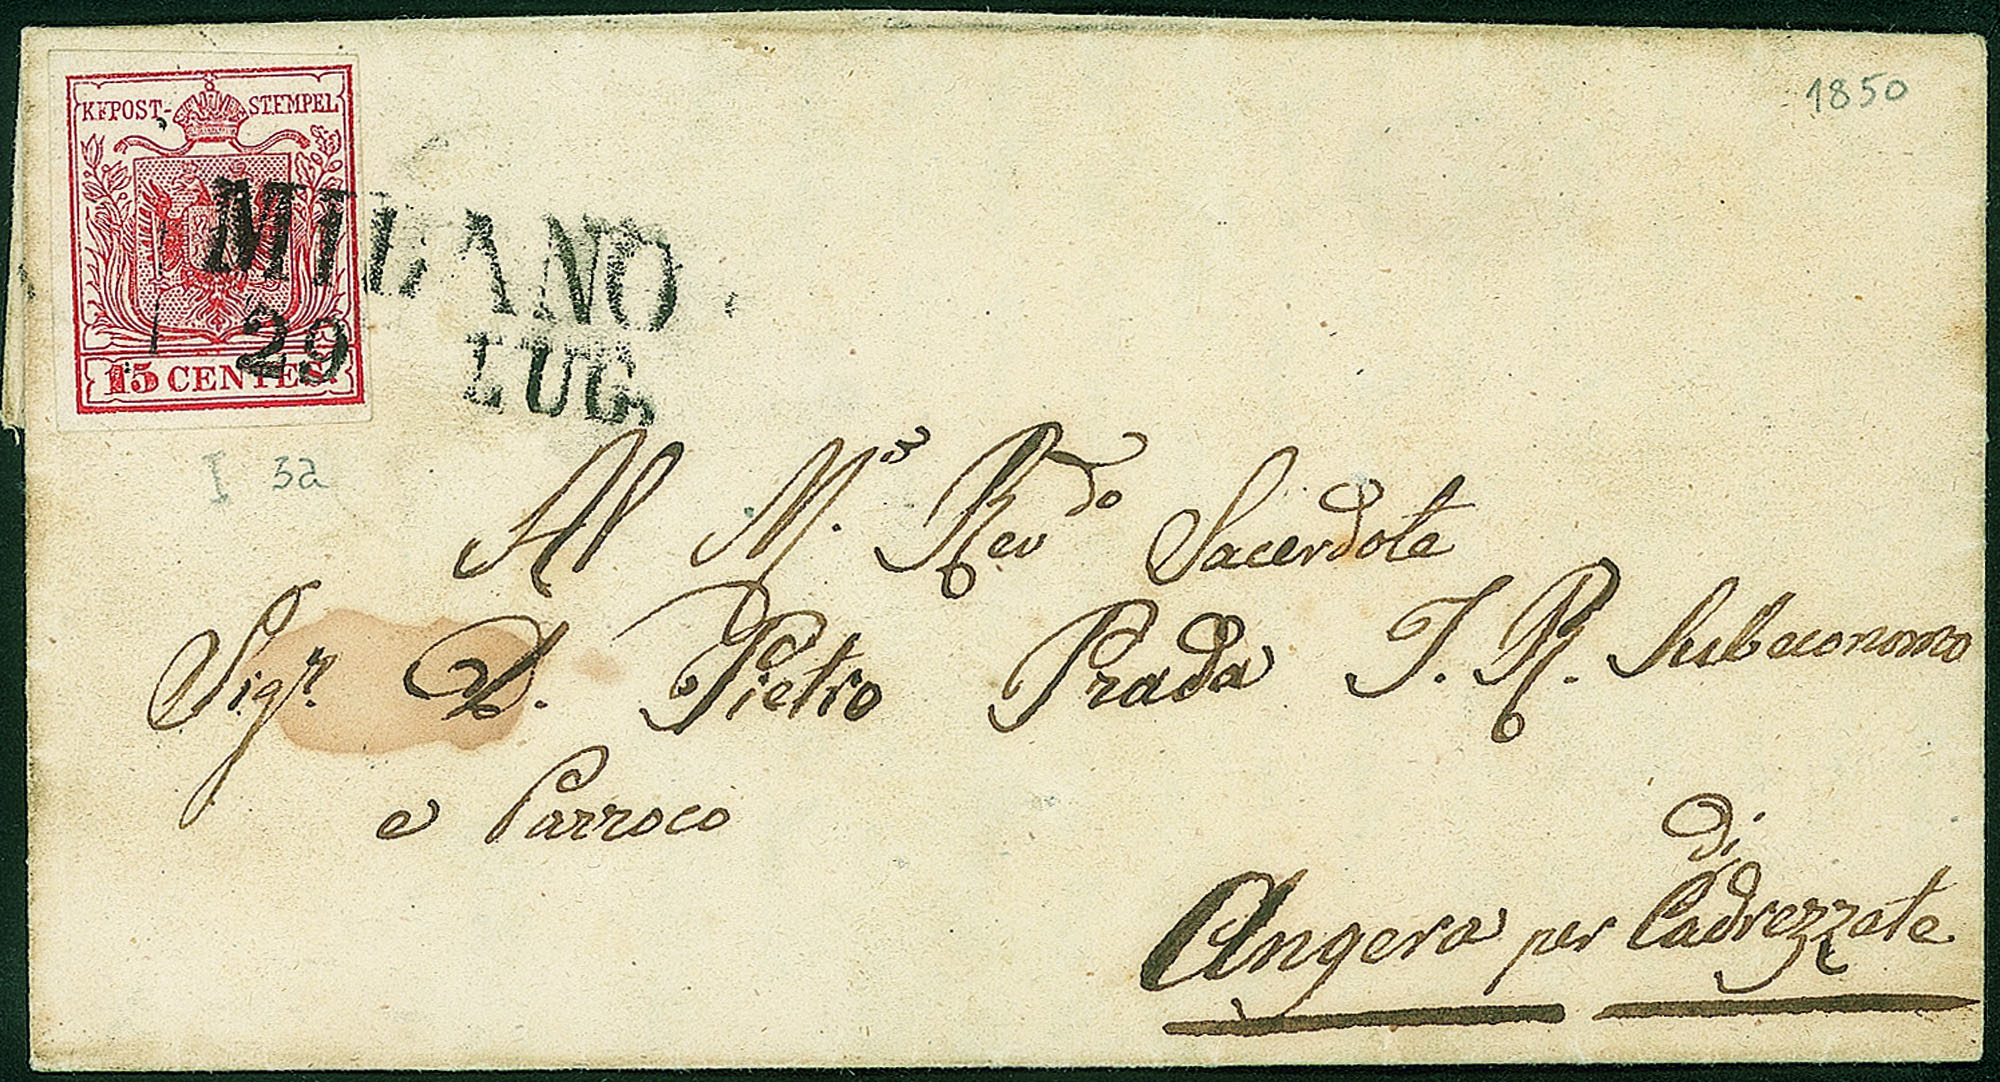 1850
KK POST-STEMPEL
15 CENTES.
MILANO
29 LUG.
I 3a
Al M.º Revdo Sacerdote
Sigr. D. Pietro Prada I. R. Subeconomo
e Parroco
di
Angera per Cadrezzate